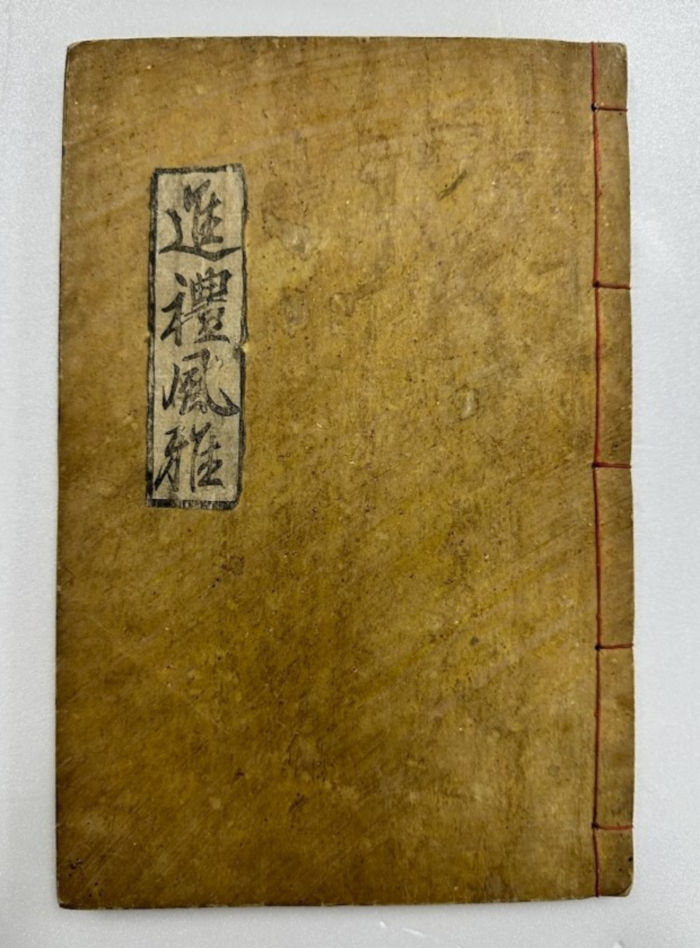 進禮風雅